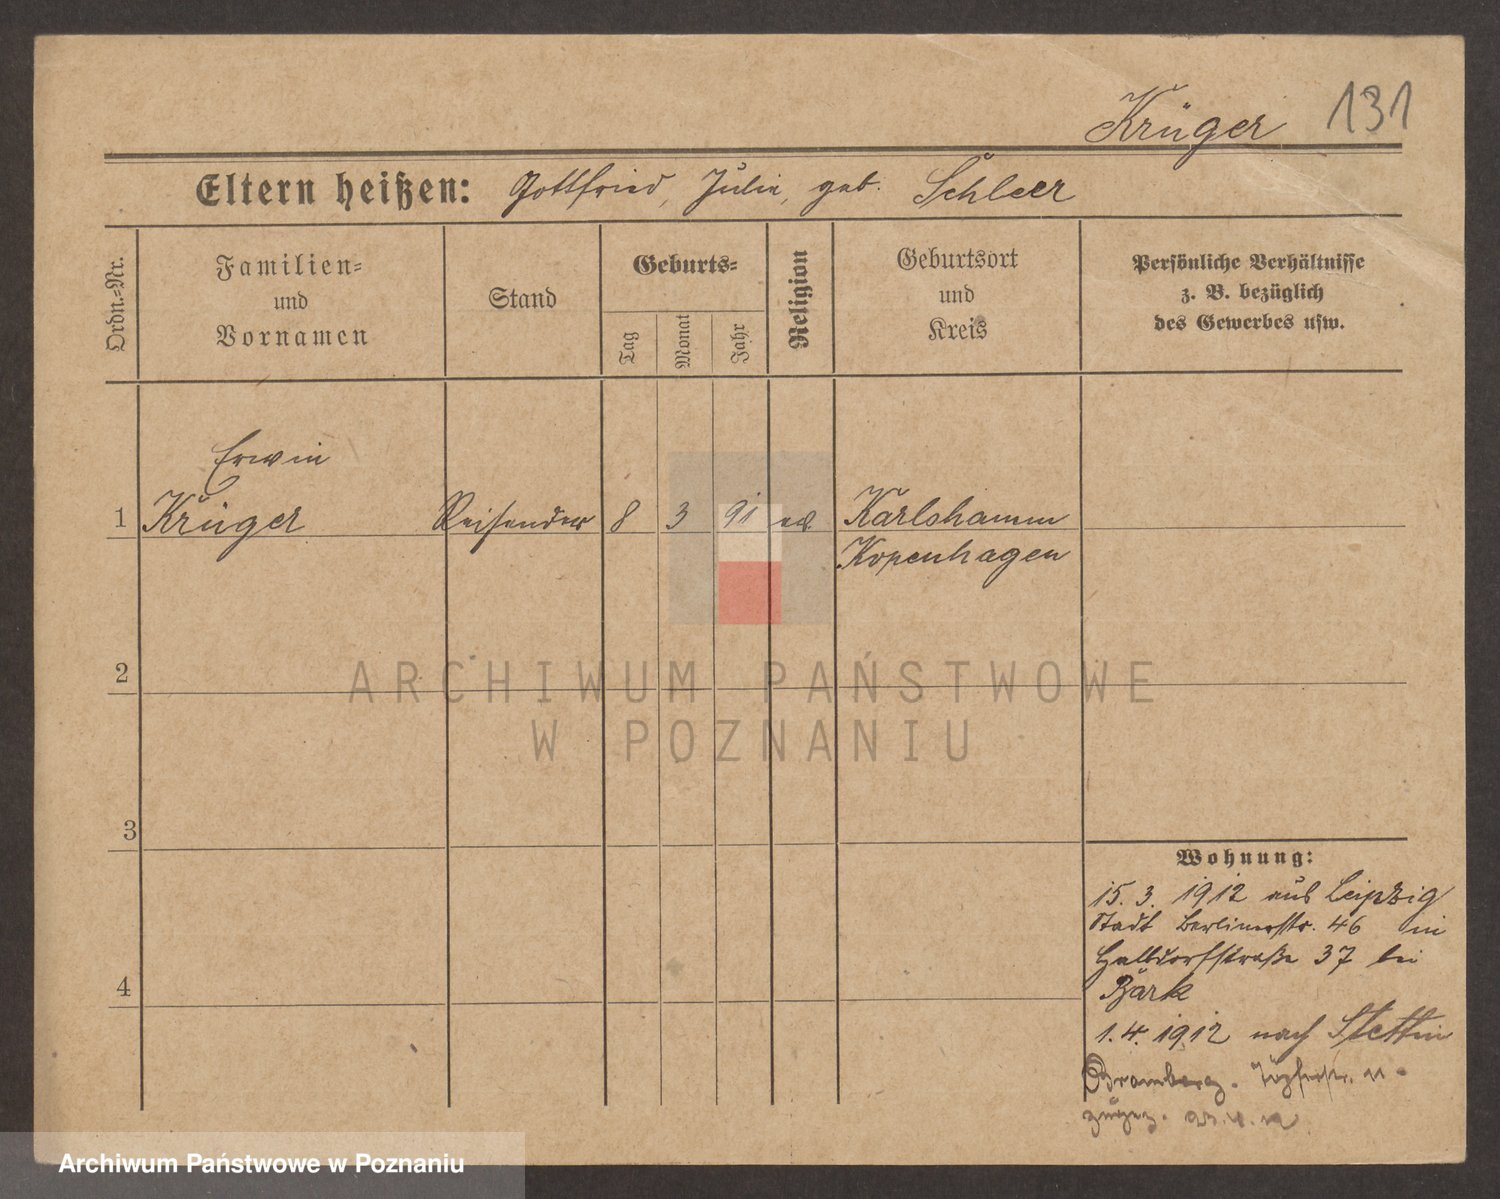 Krüger 131
Eltern heißen: Gottfried, Julie, geb. Schleer
Ordn.-Nr.
Familien-
und
Vornamen
Stand
Geburts-
Tag
Monat
Jahr
Religion
Geburtsort
und
Kreis
Persönliche Verhältnisse
z. B. bezüglich
des Gewerbes usw.
Erwin
1 Krüger Reisender 8 3 91 ev. Karlshamm
Kopenhagen
2
ARCHIWUM PAŃSTWOWE
W POZNANIU
3
Wohnung:
15. 3. 1912 aus Leipzig
Stadt Berlinerstr. 46 in
Halbdorfstraße 37 bei
4
Bärk
1. 4. 1912 nach Stettin
Bromberg.
Archiwum Państwowe w Poznaniu